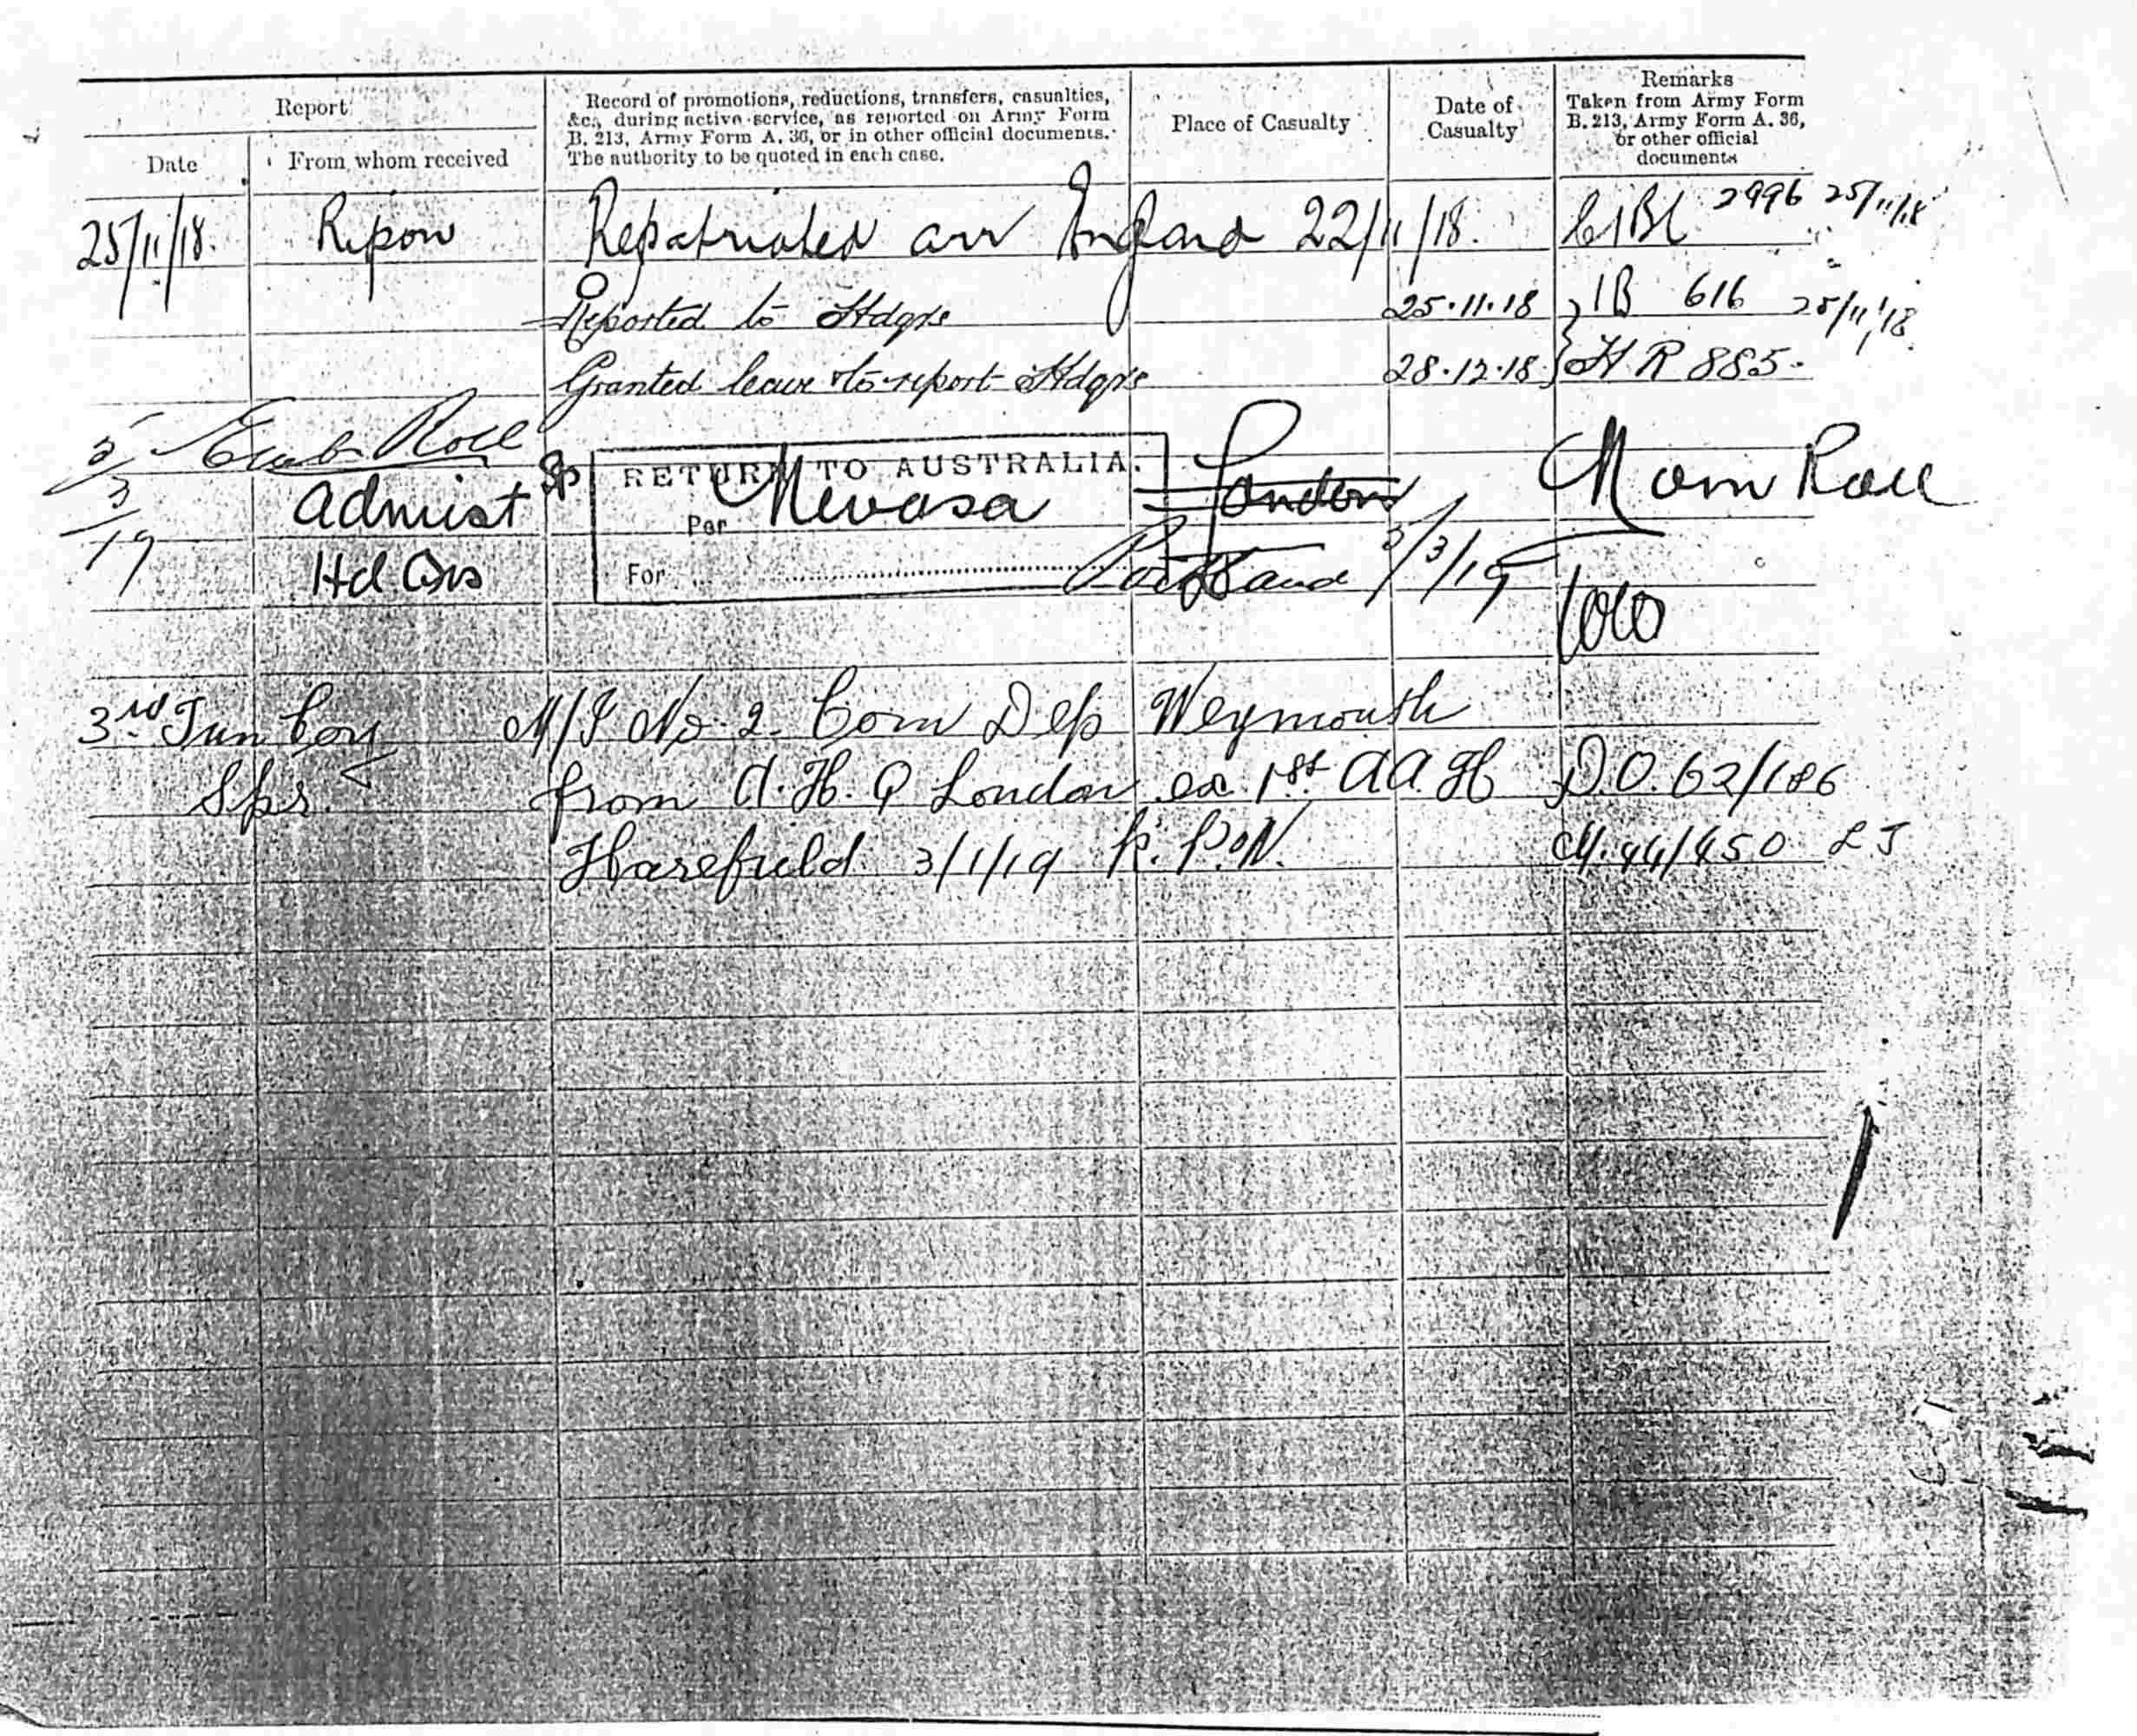 Report
Date
From whom received
Record of promotions, reductions, transfers, casualties,
&c., during active service, as reported on Army Form
B. 213, Army Form A. 36, or in other official documents.
The authority to be quoted in each case.
Place of Casualty
Date of
Casualty
Remarks
Taken from Army Form
B. 213, Army Form A. 36,
or other official
documents
25/11/18. Ripon Repatriated arr England 22/11/18. 2996 25/11/18
Reported to Hdqrs 25.11.18 1B 616 25/11/18
Granted leave to report Hdqrs 28.12.18 H R 885.
Emb Roll
Admist RETURN TO AUSTRALIA. London Nom Roll
Per Nevasa
3/19
Hd Qrs For Portland 3/19
3rd Tun Coy M/I No 2 Com Dep Weymouth
Sps. from A.H.Q London ex 1st AA.H D.O. 62/186
Harefield 3/1/19 M.44/450 LJ